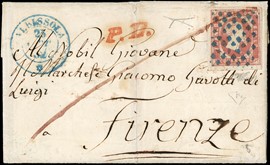 ALBISSOLA
23
P.D.
Al Nobil Giovane
Marchese Giacomo Gavotti di
Luigi
Firenze